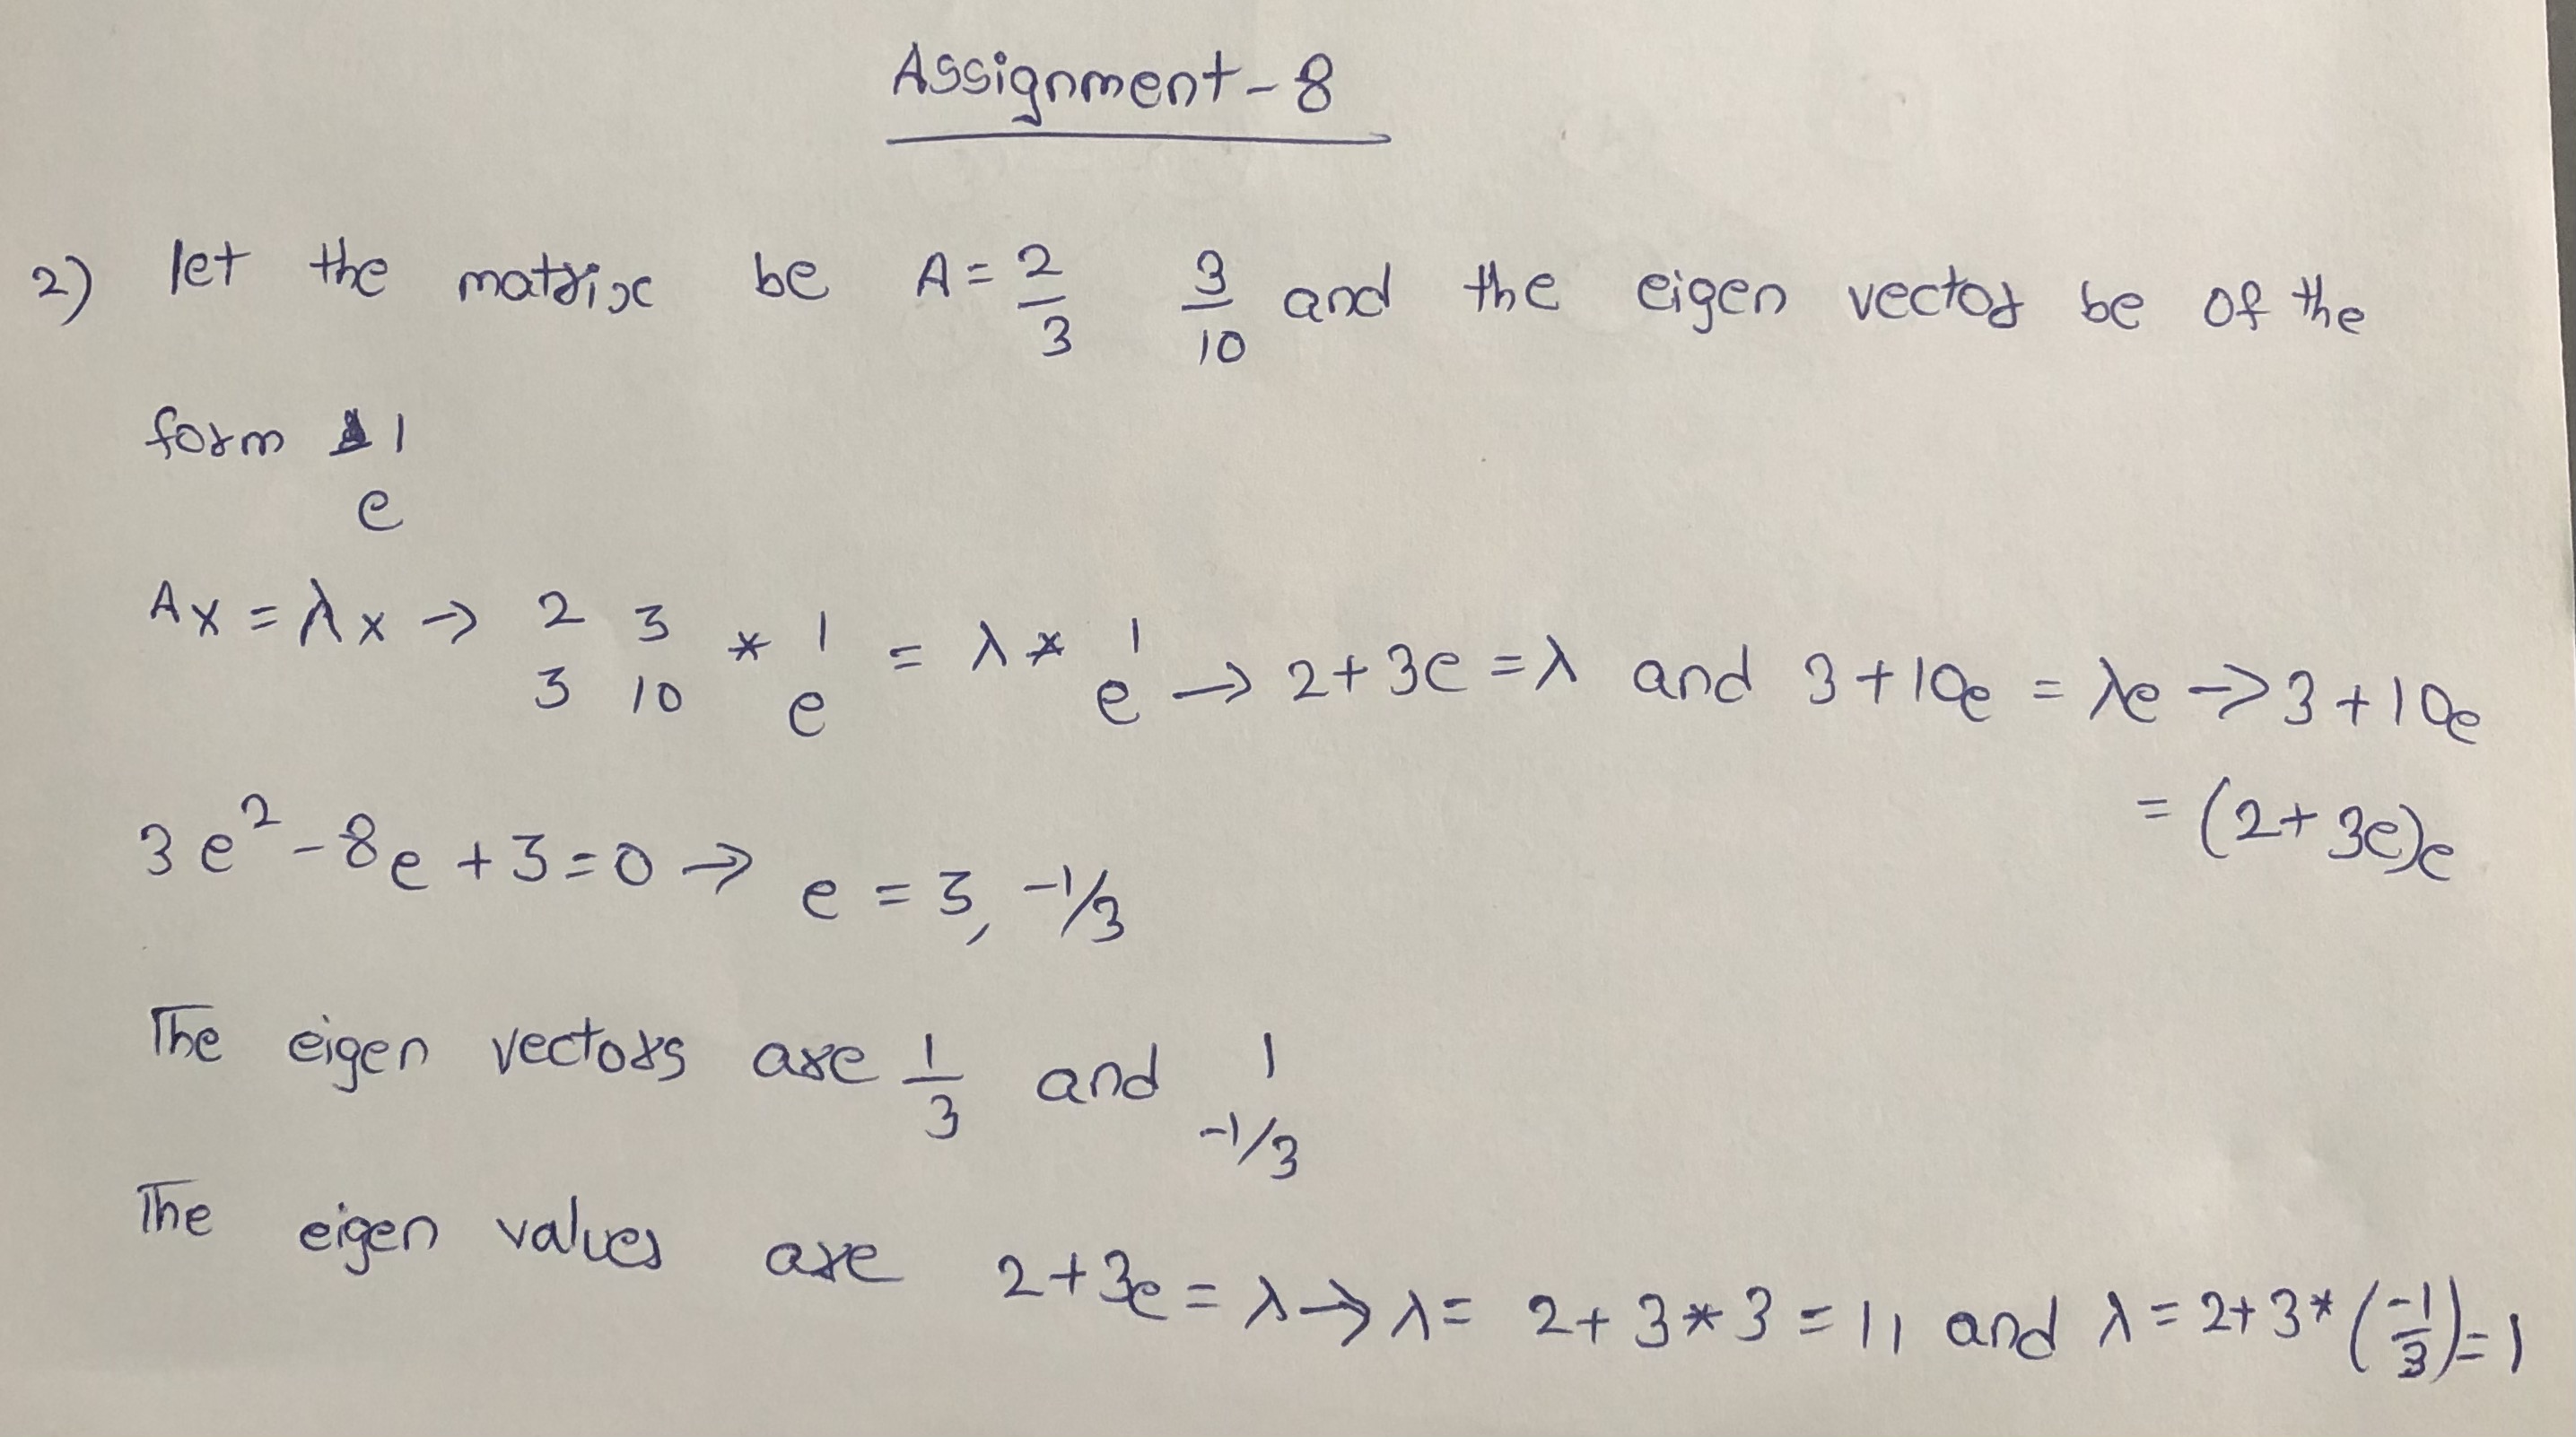 Assignment-8
2) let the matrix be A = 2/3 3/10 and the eigen vector be of the
form 1
e
Ax = λx → 2 3 * 1 = λ * 1 → 2+3e = λ and 3+10e = λe → 3+10e
3 10 e e
= (2+3e)e
3e² - 8e + 3 = 0 → e = 3, -1/3
The eigen vectors are 1/3 and 1
-1/3
The eigen values are 2+3e = λ → λ = 2+3*3 = 11 and λ = 2+3*(-1/3) = 1